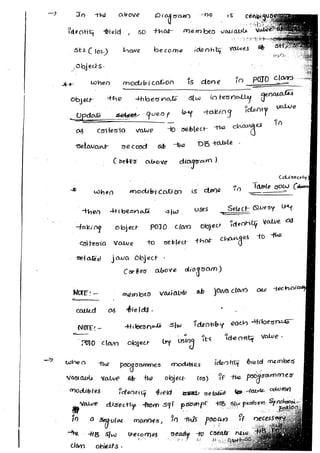 → In the above Diagram no is configured
identity field, so that member variable values
Stx (101) have become identity values of
objects.
** when modification is done in POJO class
object the hibernate s/w internally generates
Update select query by taking identity value
as criteria value to reflect the changes in
relavant record of the DB table.
(Refer above diagram)
* when modification is done in Table row
then Hibernate s/w uses Select Query by
taking object POJO class object identity value as
criteria value to reflect that changes to the
related java object.
(Refer above diagram)
NOTE:- member variable of java class are
called as fields.
NOTE:- Hibernate s/w identify each
POJO class object by using its identity value.
→ when the programmer modifies identity field member
variable value of the object (or) if the programmer
modifies identity field related table column
value directly from sql prompt HB s/w perform
in a regular manner, in this process if necessary
the HB s/w becomes ready to create new HB
class objects.